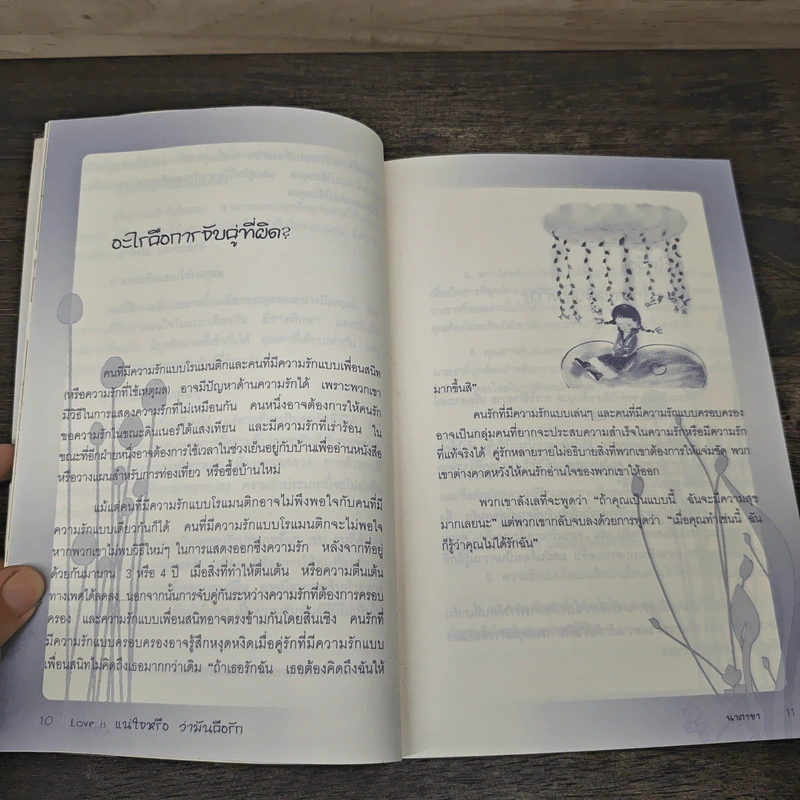 อะไรคือการจับคู่ที่ผิด?
คนที่มีความรักแบบโรแมนติกและคนที่มีความรักแบบเพื่อนสนิท
(หรือความรักที่ใช้เหตุผล) อาจมีปัญหาด้านความรักได้ เพราะพวกเขา
มีวิธีในการแสดงความรักที่ไม่เหมือนกัน คนหนึ่งอาจต้องการให้คนรัก
ขอความรักในขณะดินเนอร์ใต้แสงเทียน และมีความรักที่เร่าร้อน ใน
ขณะที่อีกฝ่ายหนึ่งอาจต้องการใช้เวลาในช่วงเย็นอยู่กับบ้านเพื่ออ่านหนังสือ
หรือวางแผนสำหรับการท่องเที่ยว หรือซื้อบ้านใหม่
แม้แต่คนที่มีความรักแบบโรแมนติกอาจไม่พึงพอใจกับคนที่มี
ความรักแบบเดียวกันก็ได้ คนที่มีความรักแบบโรแมนติกจะไม่พอใจ
หากพวกเขาไม่พบวิธีใหม่ๆ ในการแสดงออกซึ่งความรัก หลังจากที่อยู่
ด้วยกันมานาน 3 หรือ 4 ปี เมื่อสิ่งที่ทำให้ตื่นเต้น หรือความตื่นเต้น
ทางเพศได้ลดลง นอกจากนั้นการจับคู่กันระหว่างความรักที่ต้องการครอบ
ครอง และความรักแบบเพื่อนสนิทอาจตรงข้ามกันโดยสิ้นเชิง คนรักที่
มีความรักแบบครอบครองอาจรู้สึกหงุดหงิดเมื่อคู่รักที่มีความรักแบบ
เพื่อนสนิทไม่คิดถึงเธอมากกว่าเดิม "ถ้าเธอรักฉัน เธอต้องคิดถึงฉันให้
10 Love is แน่ใจหรือ ว่ามันคือรัก
มากขึ้นสิ"
คนรักที่มีความรักแบบเล่นๆ และคนที่มีความรักแบบครอบครอง
อาจเป็นกลุ่มคนที่ยากจะประสบความสำเร็จในความรักหรือมีความรัก
ที่แท้จริงได้ คู่รักหลายรายไม่อธิบายสิ่งที่พวกเขาต้องการให้แจ่มชัด พวก
เขาต่างคาดหวังให้คนรักอ่านใจของพวกเขาให้ออก
พวกเขาลังเลที่จะพูดว่า "ถ้าคุณเป็นแบบนี้ ฉันจะมีความสุข
มากเลยนะ" แต่พวกเขากลับจบลงด้วยการพูดว่า "เมื่อคุณทำเช่นนี้ ฉัน
ก็รู้ว่าคุณไม่ได้รักฉัน"
นาตาชา 11